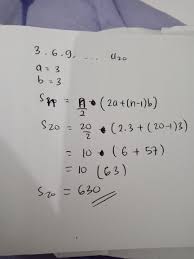 3. 6. 9. ... a₂₀
a = 3
b = 3
Sₙ = n/2 • (2a+(n-1)b)
S₂₀ = 20/2 • (2.3 + (20-1)3)
= 10 • (6 + 57)
= 10 (63)
S₂₀ = 630